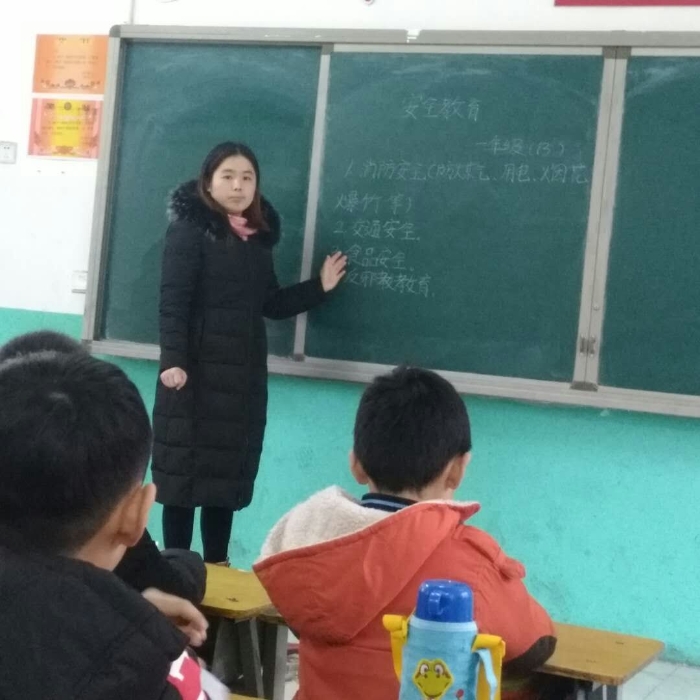 安全教育
一年级(13)
1.消防安全(防火、用电、烟花
爆竹等)
2.交通安全、
食品安全、
反邪教教育.